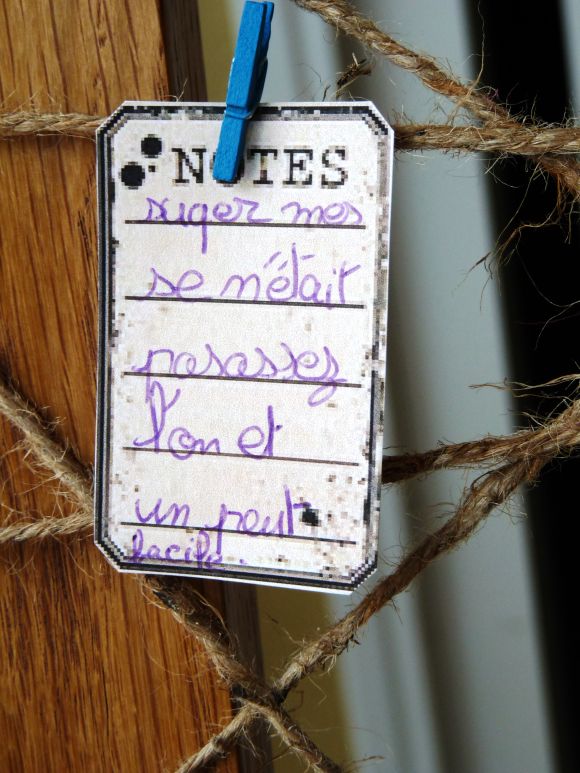 NOTES
super mes
se n'était
pasassez
l'on et
un peut
facile.